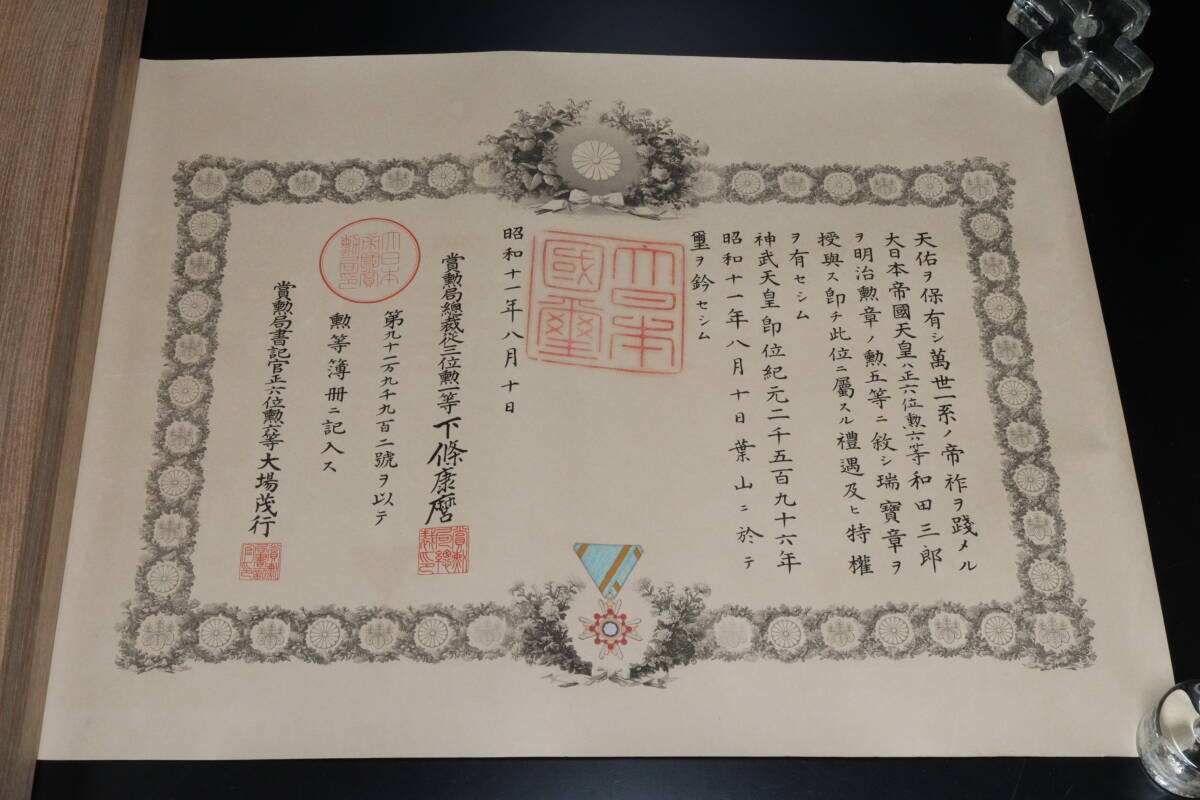 天佑ヲ保有シ萬世一系ノ帝祚ヲ踐メル
大日本帝國天皇ハ正六位勲六等和田三郎
ヲ明治勲章ノ勲五等ニ敘シ瑞寶章ヲ
授與ス即チ此位ニ屬スル禮遇及ヒ特權
ヲ有セシム
神武天皇即位紀元二千五百九十六年
昭和十一年八月十日葉山ニ於テ
璽ヲ鈐セシム
大日本
國璽
昭和十一年八月十日
賞勲局總裁從三位勲一等下條康麿
賞勲局總裁印
第九十一万九千九百二號ヲ以テ
勲等簿册ニ記入ス
大日本
帝國賞
勲局印
賞勲局書記官正六位勲六等大場茂行